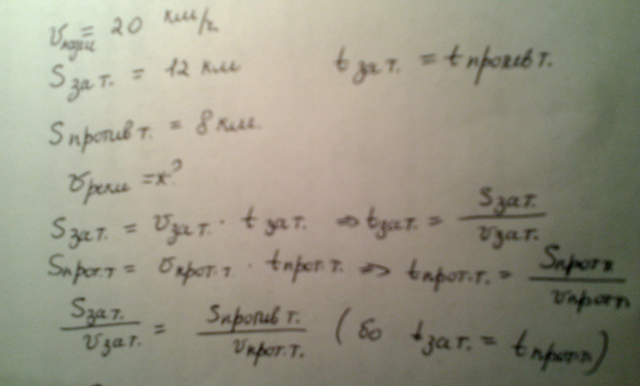 υ_моди = 20 км/г
S за т. = 12 км    t за т. = t против т.
S против т. = 8 км.
υ реки = x?
S за т. = υ за т. · t за т. ⇒ t за т. = S за т. / υ за т.
S прот. т = υ прот. т. · t прот. т. ⇒ t прот. т. = S прот п / υ прот п
S за т. / υ за т. = S против т. / υ прот. т. (бо t за т. = t прот п)